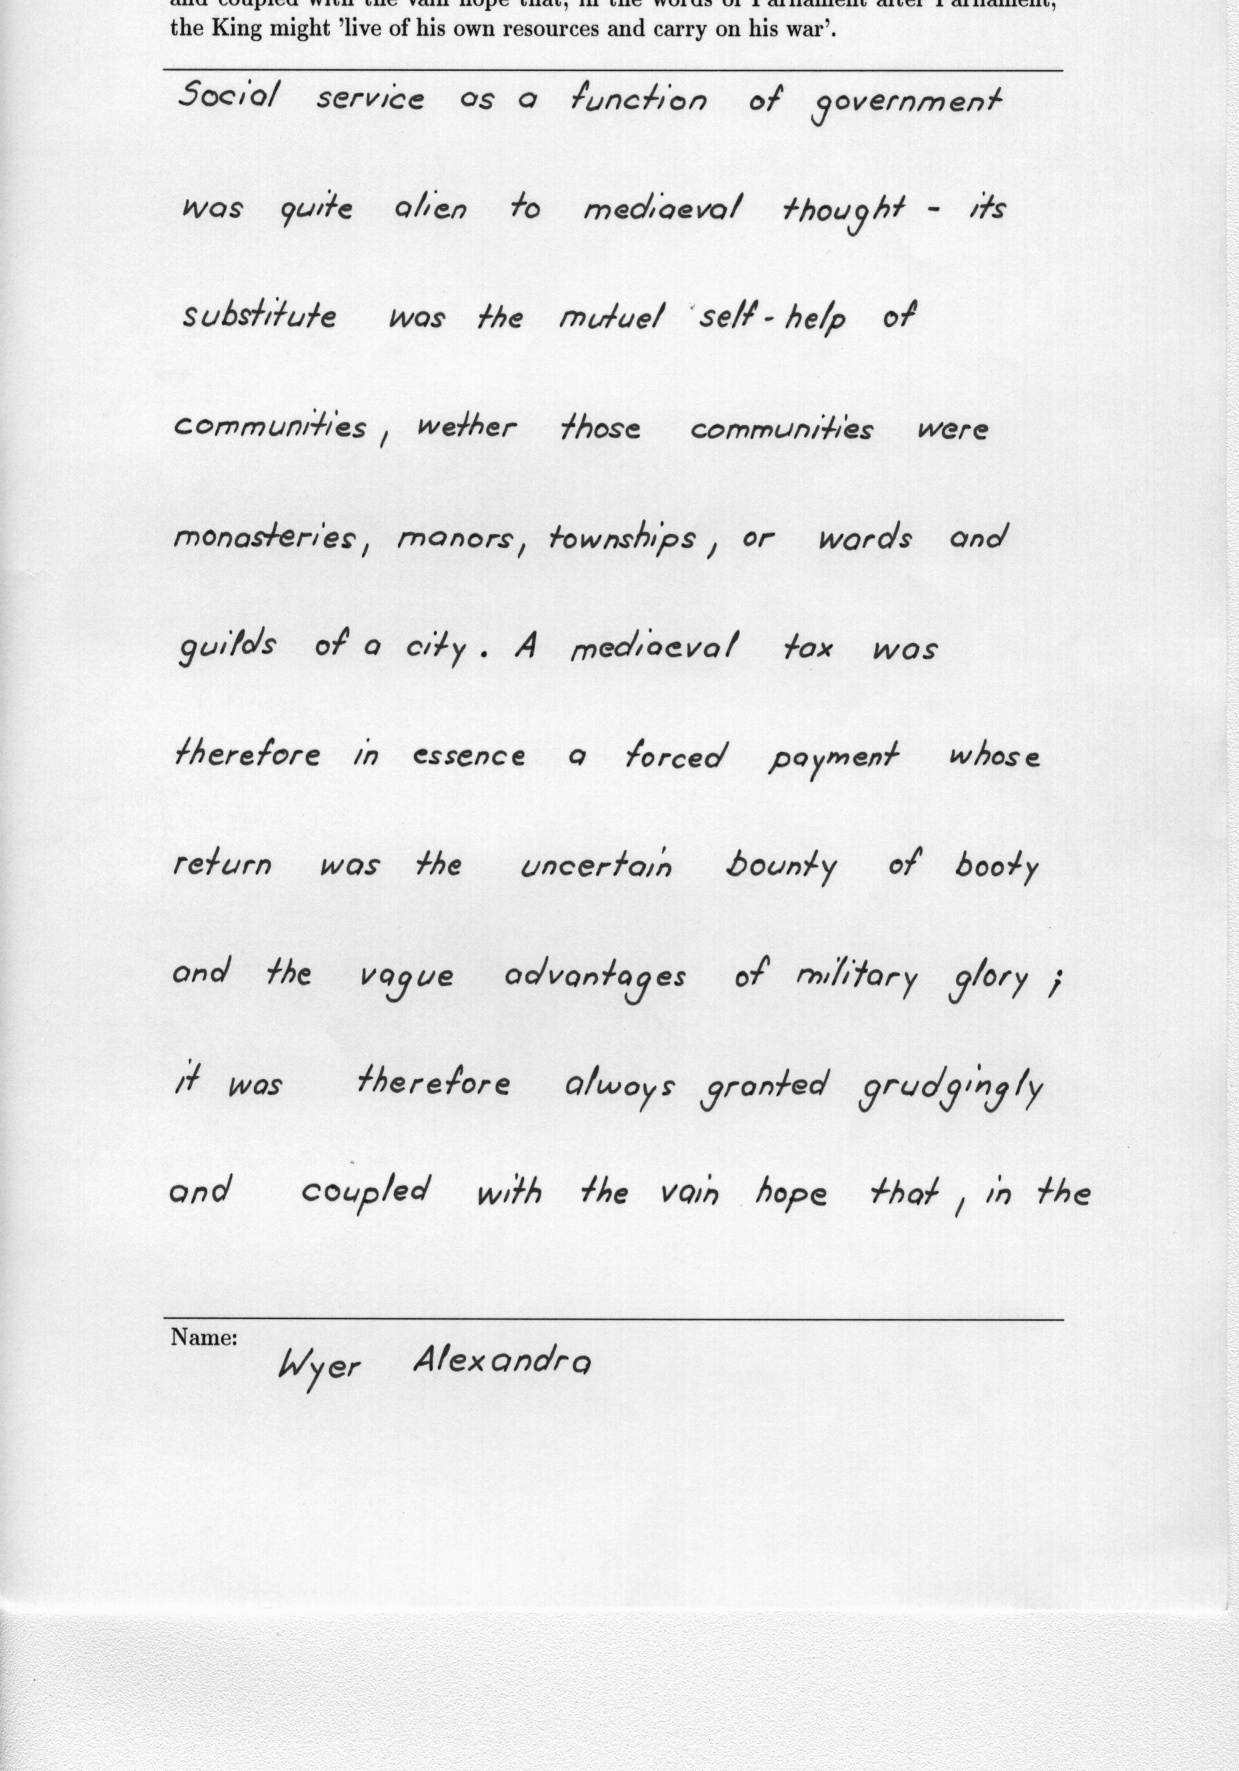 and coupled with the vain hope that, in the words of Parliament after Parliament,
the King might 'live of his own resources and carry on his war'.
Social service as a function of government
was quite alien to mediaeval thought - its
substitute was the mutuel self-help of
communities, wether those communities were
monasteries, manors, townships, or wards and
guilds of a city. A mediaeval tax was
therefore in essence a forced payment whose
return was the uncertain bounty of booty
and the vague advantages of military glory;
it was therefore always granted grudgingly
and coupled with the vain hope that, in the
Name:
Wyer Alexandra